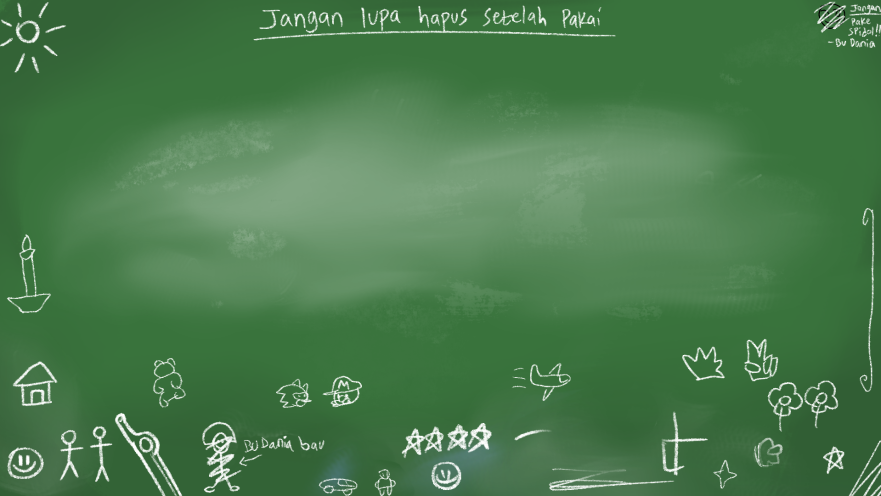 Jangan lupa hapus setelah Pakai
Jangan
Pake
SPidol!!
- Bu Dania
M
Bu Dania bau